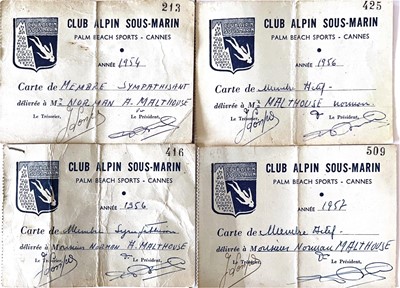 213
CLUB ALPIN SOUS-MARIN
PALM BEACH SPORTS - CANNES
ANNÉE 1954
Carte de MEMBRE SYMPATHISANT
délivrée à Mr NORMAN A. MALTHOUSE
Le Trésorier, Le Président,
425
CLUB ALPIN SOUS-MARIN
PALM BEACH SPORTS - CANNES
ANNÉE 1956
Carte de Membre Actif
délivrée à Mr MALTHOUSE Norman
Le Trésorier, Le Président,
416
CLUB ALPIN SOUS-MARIN
PALM BEACH SPORTS - CANNES
ANNÉE 1956
Carte de Membre
délivrée à Monsieur NORMAN A. MALTHOUSE
Le Trésorier, Le Président,
509
CLUB ALPIN SOUS-MARIN
PALM BEACH SPORTS - CANNES
ANNÉE 1957
Carte de Membre Actif
délivrée à Monsieur Norman MALTHOUSE
Le Trésorier, Le Président,